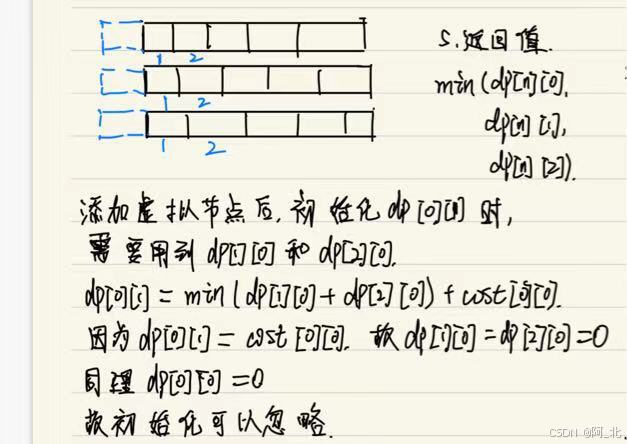 1 2
1 2
1 2
5.返回值.
min(dp[n][0],
dp[n][1],
dp[n][2]).
添加虚拟节点后,初始化dp[0][1]时,
需要用到dp[1][0]和dp[2][0].
dp[0][1] = min(dp[1][0]+dp[2][0])+cost[0][0].
因为dp[0][1] = cost[0][0]. 故dp[1][0]=dp[2][0]=0
同理dp[0][0]=0
故初始化可以忽略.
CSDN @阿_北.